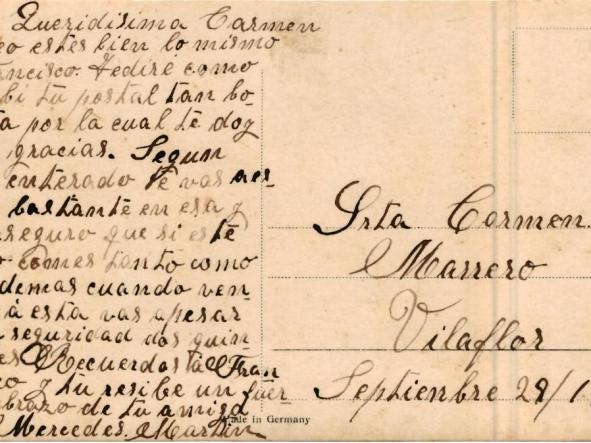 Queridisima Carmen
eo estes bien lo mismo
ancisco. Tedire como
bi tu postal tan bo-
a por la cual te doy
gracias. Segun
enterado te vas
bastante en esa y
seguro que si este
comes tanto como
demas cuando ven-
a esta vas apesar
seguridad dos quin
es Recuerdos ta Fran
co y tu resibe un fuer
brazo de tu amiga
Mercedes. Martin
Srta Carmen
Marrero
Vilaflor
Septienbre 29/1
Made in Germany